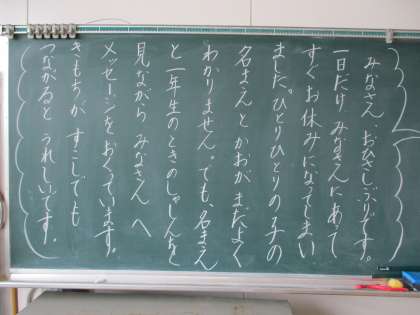 みなさん、おひさしぶりです。
一日だけ みなさんに あって
すぐ お休みに なってしまい
ました。ひとりひとりの子の
名まえと かおが まだ よく
わかりません。でも、名まえ
と一年生のときのしゃしんを
見ながら みなさんへ
メッセージを おくっています。
きもちが すこしでも
つながると うれしいです。